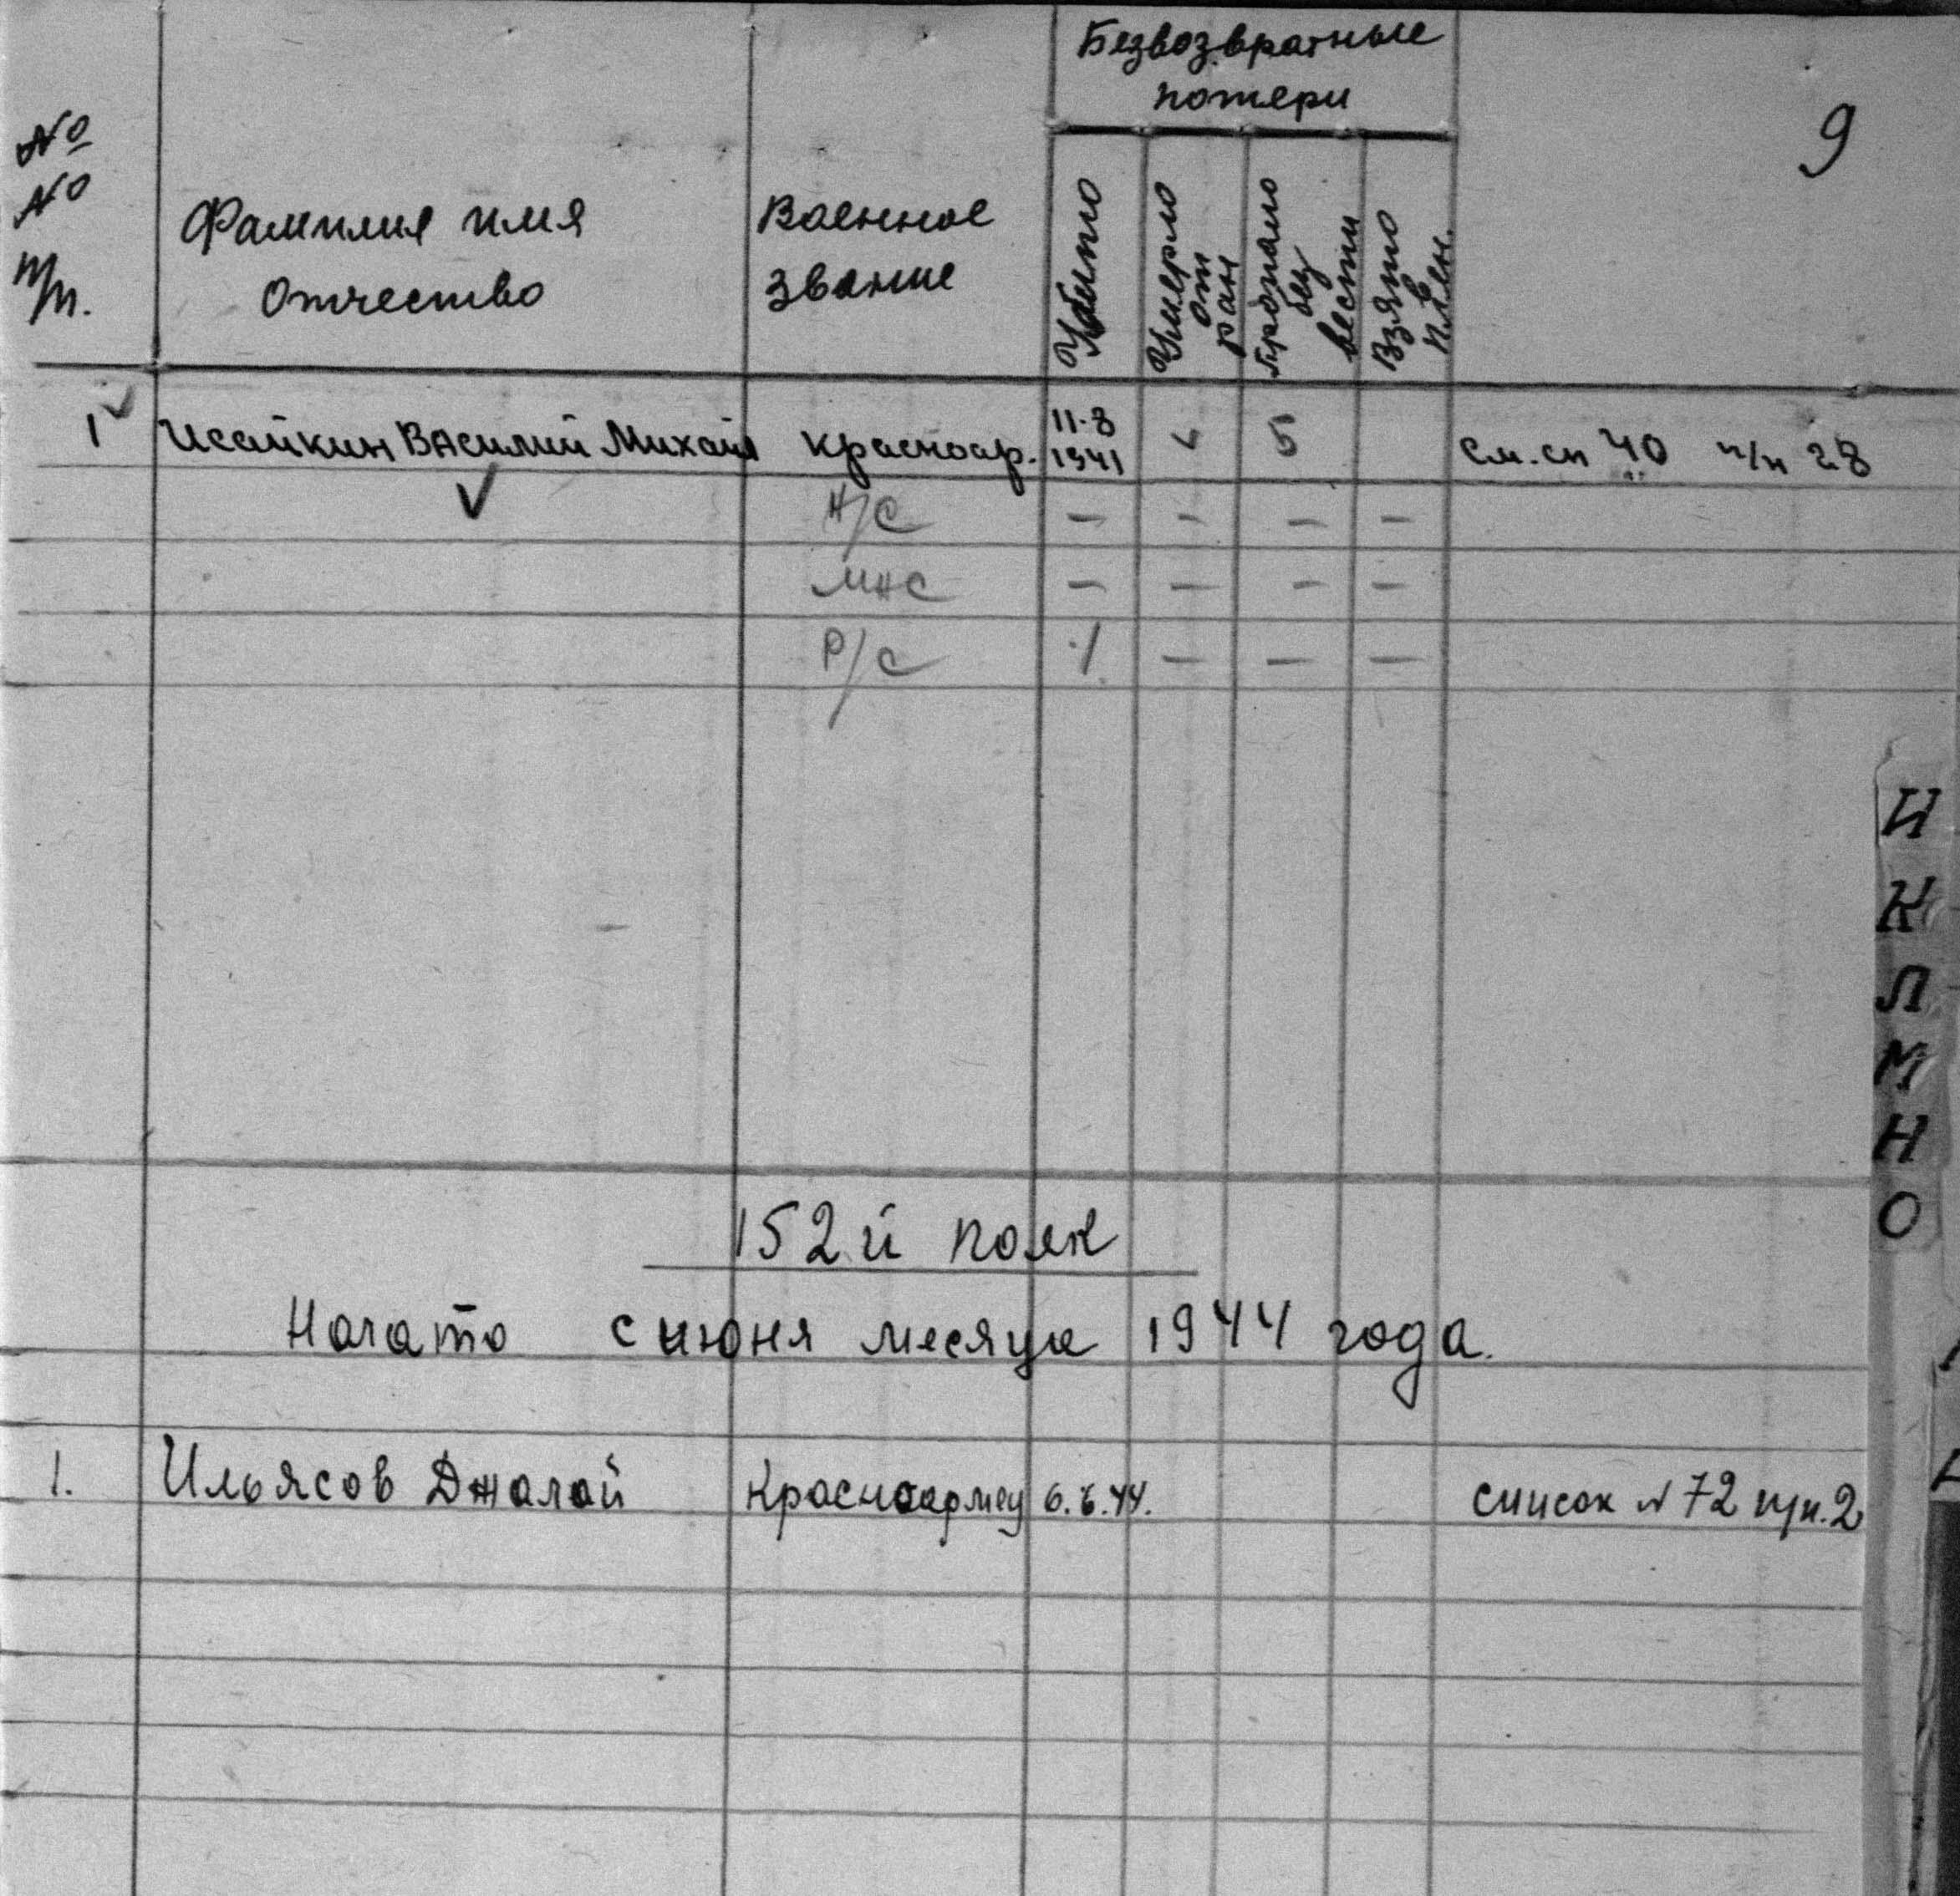 Безвозвратные
потери
9
№
№
п/п.
Фамилия имя
Отчество
Военное
звание
Убито
Умерло
от
ран
Пропало
без
вести
Взято
в
плен.
1 Исайкин Василий Михайл красноар. 11-8 1941 5 см. сп 40 п/п 28
Н/С — — — —
МНС — — — —
Р/С 1 — — —
И
К
Л
М
Н
О
152й полк
Начато с июня месяца 1944 года.
1. Ильясов Джалай Красноармец 6.6.44. список № 72 п/п.2